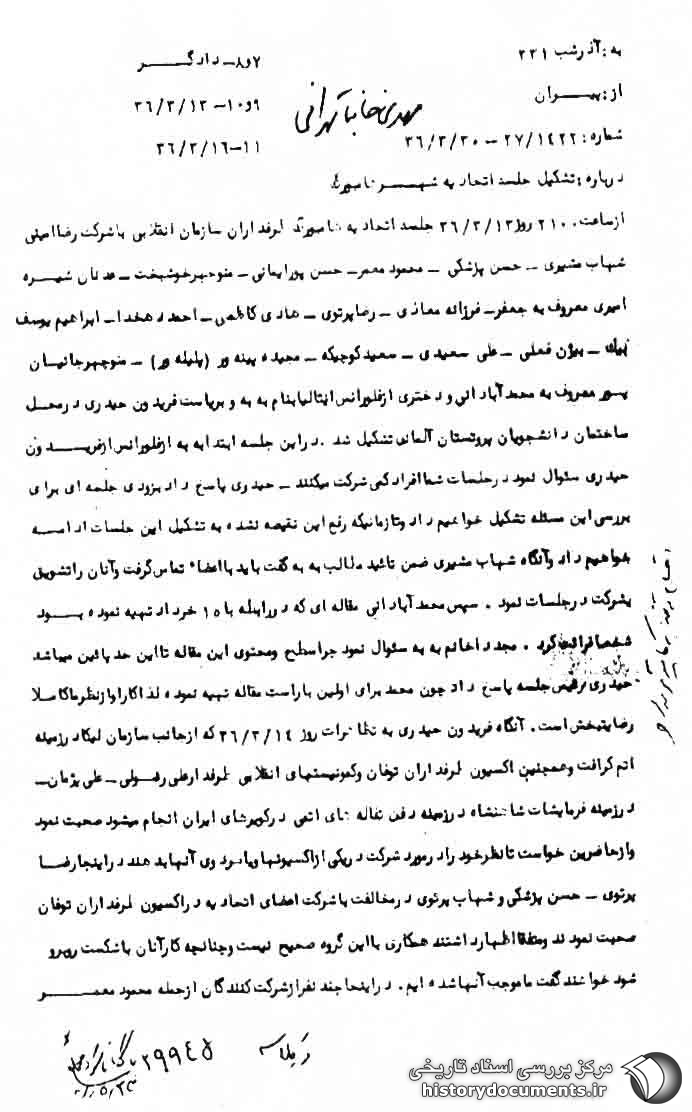 به: آذرشب ۲۳۱
۷و۸- دادگـــر
از: بهــران
۹و۱۰- ۳۶/۳/۱۳
شماره: ۲۷/۱۴۲۲ - ۳۶/۳/۳۰
۱۱- ۳۶/۳/۱۶
مهدی خانباباتهرانی
درباره: تشکیل جلسه اتحادیه شهـــر
ازساعت ۲۱۰۰ روز ۳۶/۳/۱۳ جلسه اتحادیه طرفداران سازمان انقلابی باشرکت رضاامینی
شهاب مشیری - حسن پزشکی - محمود معمر - حسن پورایمانی - منوچهرخوشبخت - عدنان شهره
امیری معروف به جعفر - فرزانه معاذی - رضاپرتوی - هادی کاظمی - احمد دهخدا - ابراهیم یوسف
بیک - بیژن فعلی - علی سعیدی - سعیدکوچیکه - مجیده پینه ور (پلیله ور) - منوچهرجانیان
پور معروف به محمدآبادانی و دختری ازفلورانس ایتالیابنام به به و بریاست فریدون حیدری درمحل
ساختمان دانشجویان پروتستان آلمانی تشکیل شد. دراین جلسه ابتدا به به ازفلورانس ازفریـــدون
حیدری سئوال نمود درجلسات شماافرادکمی شرکت میکنند - حیدری پاسخ داد بزودی جلسه ای برای
بررسی این مسئله تشکیل خواهیم داد وتازمانیکه رفع این نقیصه نشده به تشکیل این جلسات ادامـــه
خواهیم داد وآنگاه شهاب مشیری ضمن تائید مطالب به به گفت باید بااعضاء تماس گرفت وآنان راتشویق
بشرکت درجلسات نمود. سپس محمدآبادانی مقاله ای که دررابطه با ۱۵ خرداد تهیه نموده بـــود
شخصا قرائت کرد. مجددا خانم به به سئوال نمود چراسطح ومحتوی این مقاله تااین حد پائین میباشد
حیدری رئیس جلسه پاسخ داد چون محمد برای اولین باراست مقاله تهیه نموده لذاکاراوازنظرماکاملا
رضایتبخش است. آنگاه فریدون حیدری به تظاهرات روز ۳۶/۳/۱۴ که ازجانب سازمان لیکادرزمینه
اتم گرافت وهمچنین اکسیون طرفداران توفان وکمونیستهای انقلابی طرفدارعلی رسولی - علی پژمان -
درزمینه فرمایشات شاهنشاه درزمینه دفن تفاله های اتمی درکویرهای ایران انجام میشود صحبت نمود
وازحاضرین خواست تانظرخود رادرمورد شرکت دریکی ازاکسیونهاویاهردوی آنهابدهند دراینجارضـــا
پرتوی - حسن پزشکی و شهاب پرتوی درمخالفت باشرکت اعضای اتحادیه دراکسیون طرفداران توفان
صحبت نمودند ومتفقااظهارداشتند همکاری بااین گروه صحیح نیست وچنانچه کارآنان باشکست روبرو
شود خواهندگفت ماموجب آنهاشده ایم. دراینجاچند نفرازشرکت کنندگان ازجمله محمود معمـــر
۲۹۹۴۵
مرکز بررسی اسناد تاریخی
historydocuments.ir